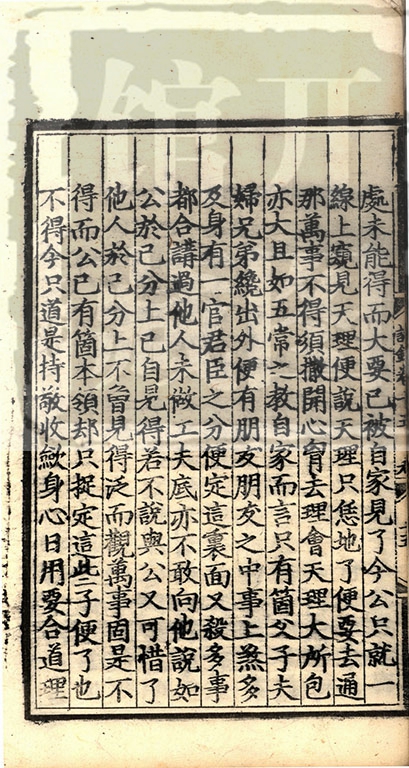 處未能得而大要已被自家見了今公只就一
線上窺見天理便說天理只恁地了便要去通
那萬事不得須撒開心胷去理會天理大所包
亦大且如五常之教自家而言只有箇父子夫
婦兄弟纔出外便有朋友朋友之中事上煞多
及身有一官君臣之分便定這裏面又殺多事
都合講過他人未做工夫底亦不敢向他說如
公於己分上已自見得若不說與公又可惜了
他人於己分上不曾見得泛而觀萬事固是不
得而公已有箇本領却只捉定這些子便了也
不得今只道是持敬收歛身心日用要合道理